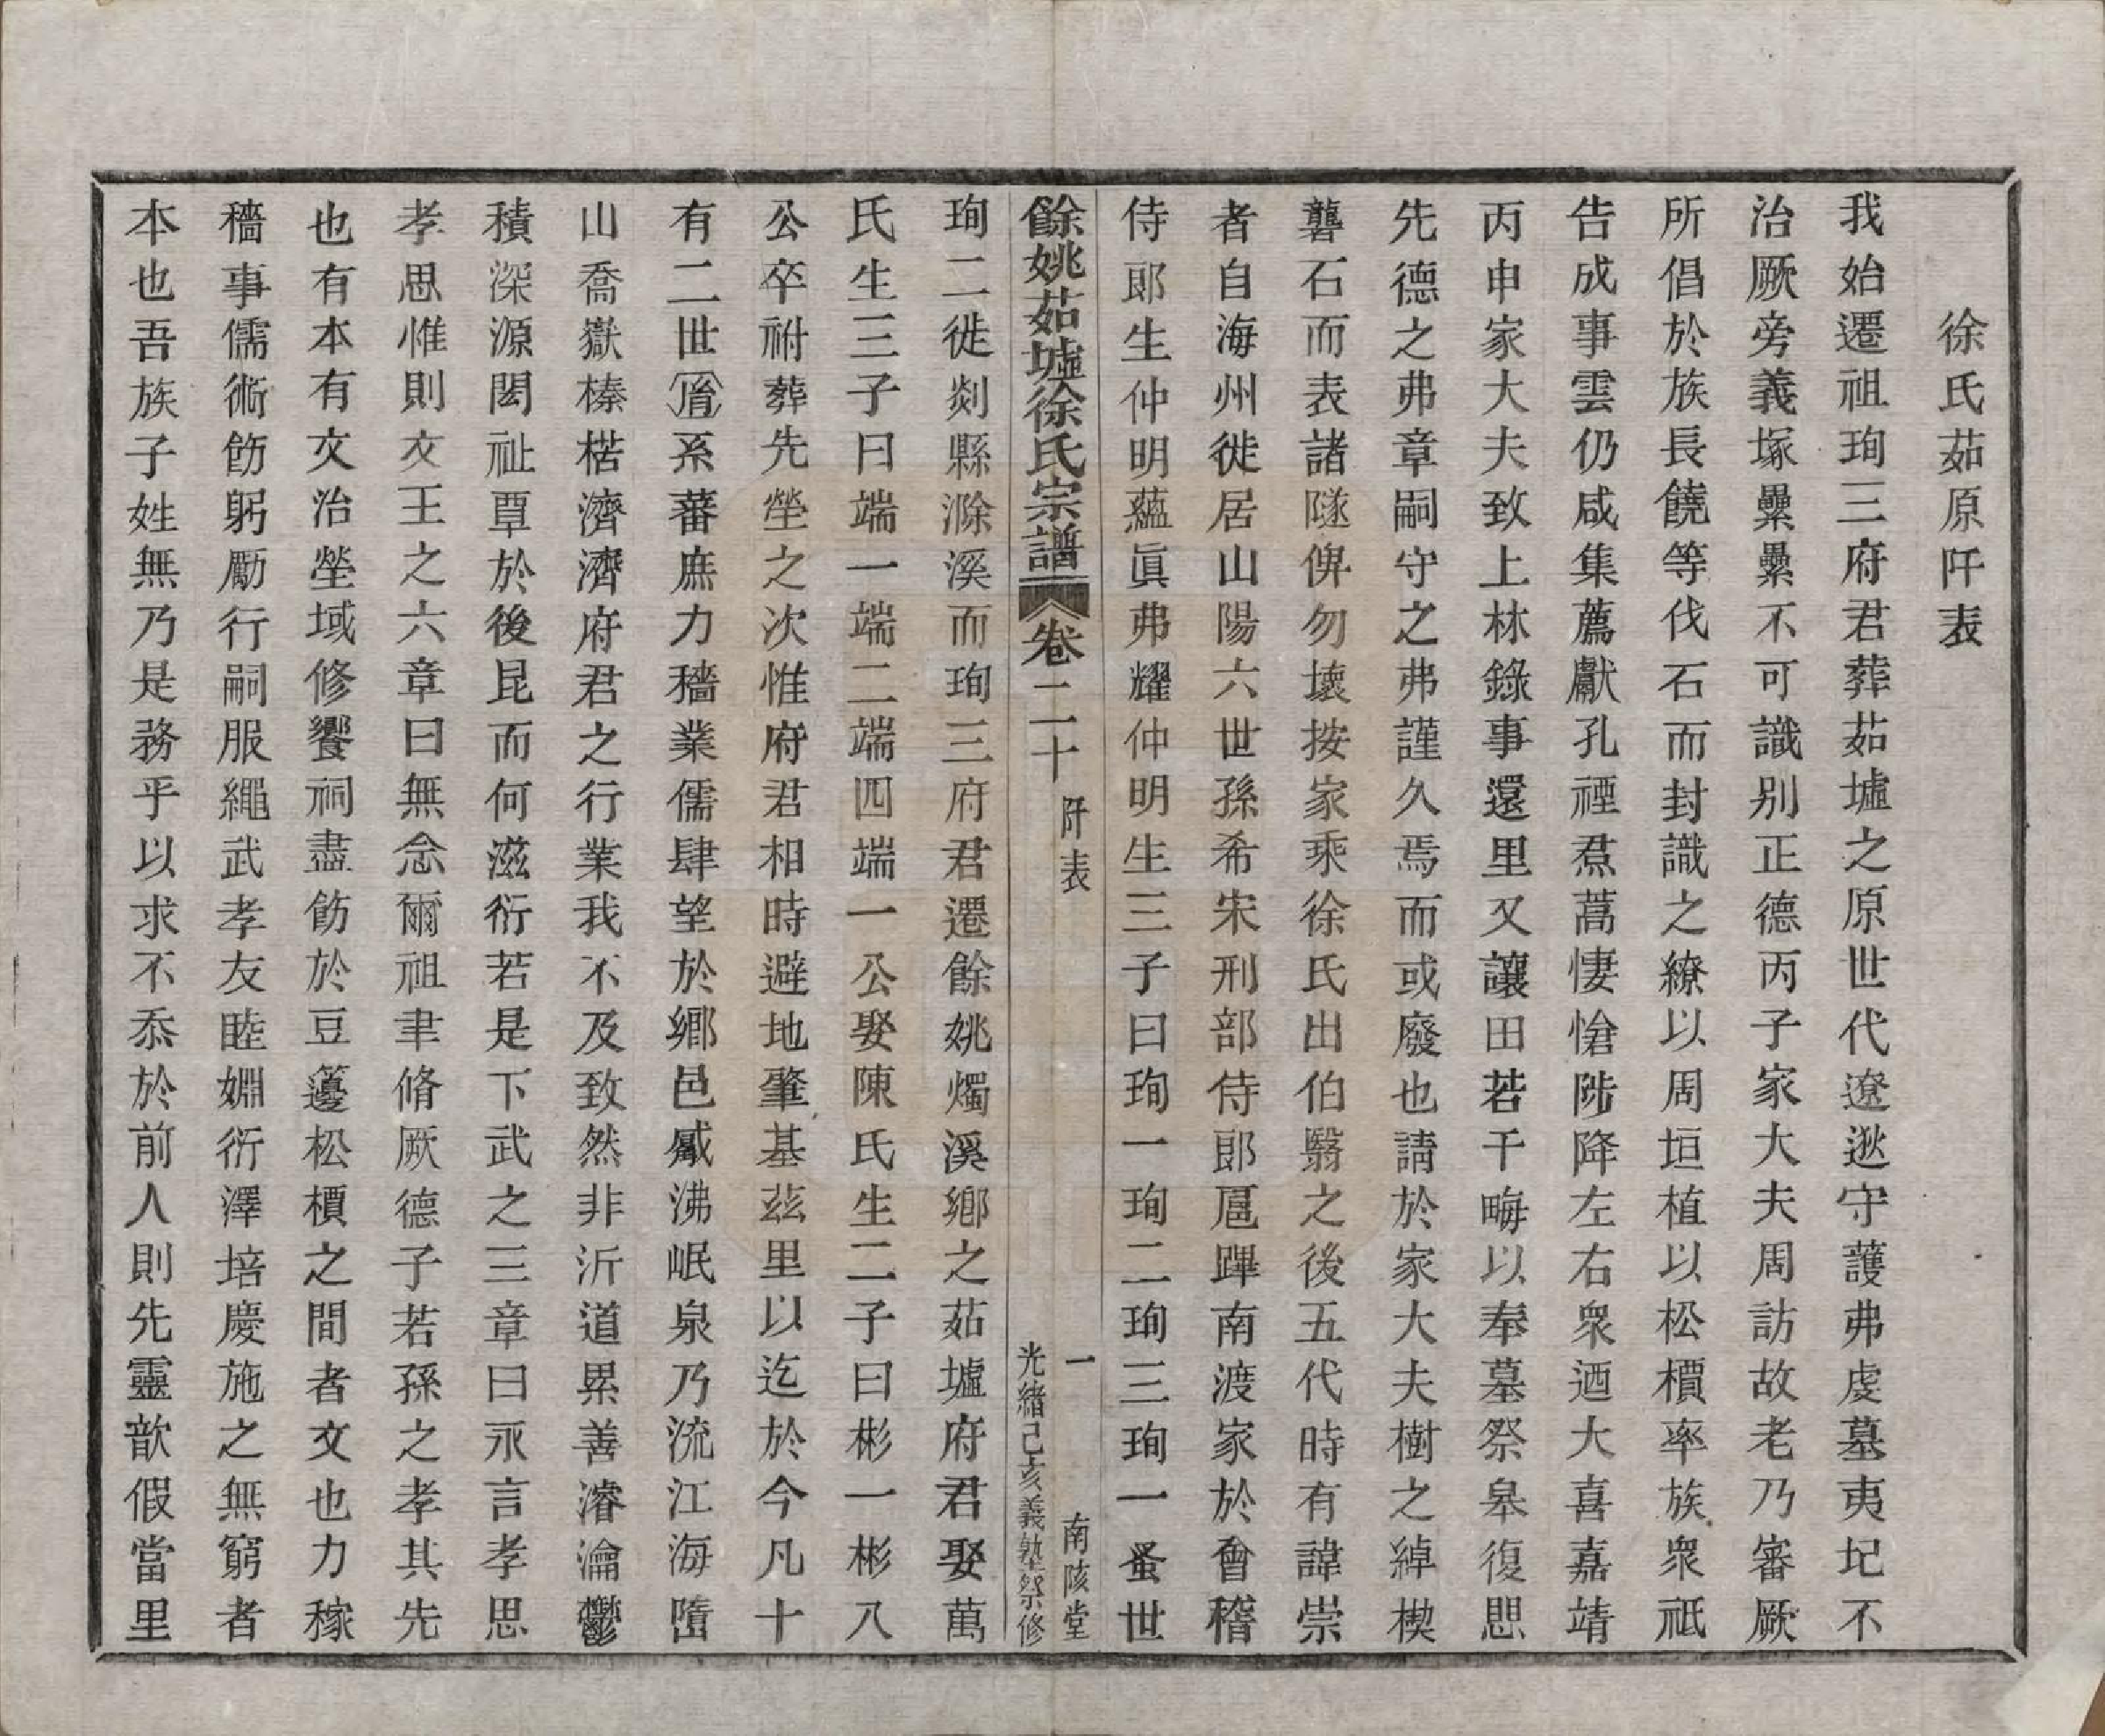 徐氏茹原阡表
我始遷祖珣三府君葬茹墟之原世代遼逖守護弗虔墓夷圮不
治厥旁義塚纍纍不可識別正德丙子家大夫周訪故老乃審厥
所倡於族長饒等伐石而封識之繚以周垣植以松檟率族衆祇
告成事雲仍咸集薦獻孔禋焄蒿悽愴陟降左右衆迺大喜嘉靖
丙申家大夫致上林錄事還里又讓田若干畮以奉墓祭皋復思
先德之弗章嗣守之弗謹久焉而或廢也請於家大夫樹之綽楔
礱石而表諸隧俾勿壞按家乘徐氏出伯翳之後五代時有諱崇
者自海州徙居山陽六世孫希宋刑部侍郎扈蹕南渡家於會稽
侍郎生仲明蘊眞弗耀仲明生三子曰珣一珣二珣三珣一蚤世
餘姚茹墟徐氏宗譜 卷二十 阡表 一 南陔堂
光緒己亥義塾祭修
珣二徙剡縣滌溪而珣三府君遷餘姚燭溪鄉之茹墟府君娶萬
氏生三子曰端一端二端四端一公娶陳氏生二子曰彬一彬八
公卒祔葬先塋之次惟府君相時避地肇基茲里以迄於今凡十
有二世胤系蕃庶力穡業儒肆望於鄉邑觱沸岷泉乃流江海隮
山喬嶽榛楛濟濟府君之行業我不及致然非沂道累善濬瀹鬱
積深源閎祉覃於後昆而何滋衍若是下武之三章曰永言孝思
孝思惟則文王之六章曰無念爾祖聿脩厥德子若孫之孝其先
也有本有文治塋域修饗祠盡飭於豆籩松檟之間者文也力稼
穡事儒術飭躬勵行嗣服繩武孝友睦婣衍澤培慶施之無窮者
本也吾族子姓無乃是務乎以求不忝於前人則先靈歆假當里